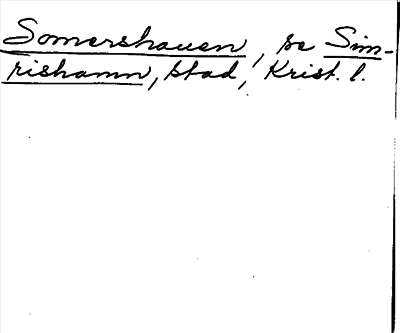 Somershauen, se Sim-
rishamn, stad, Krist. l.